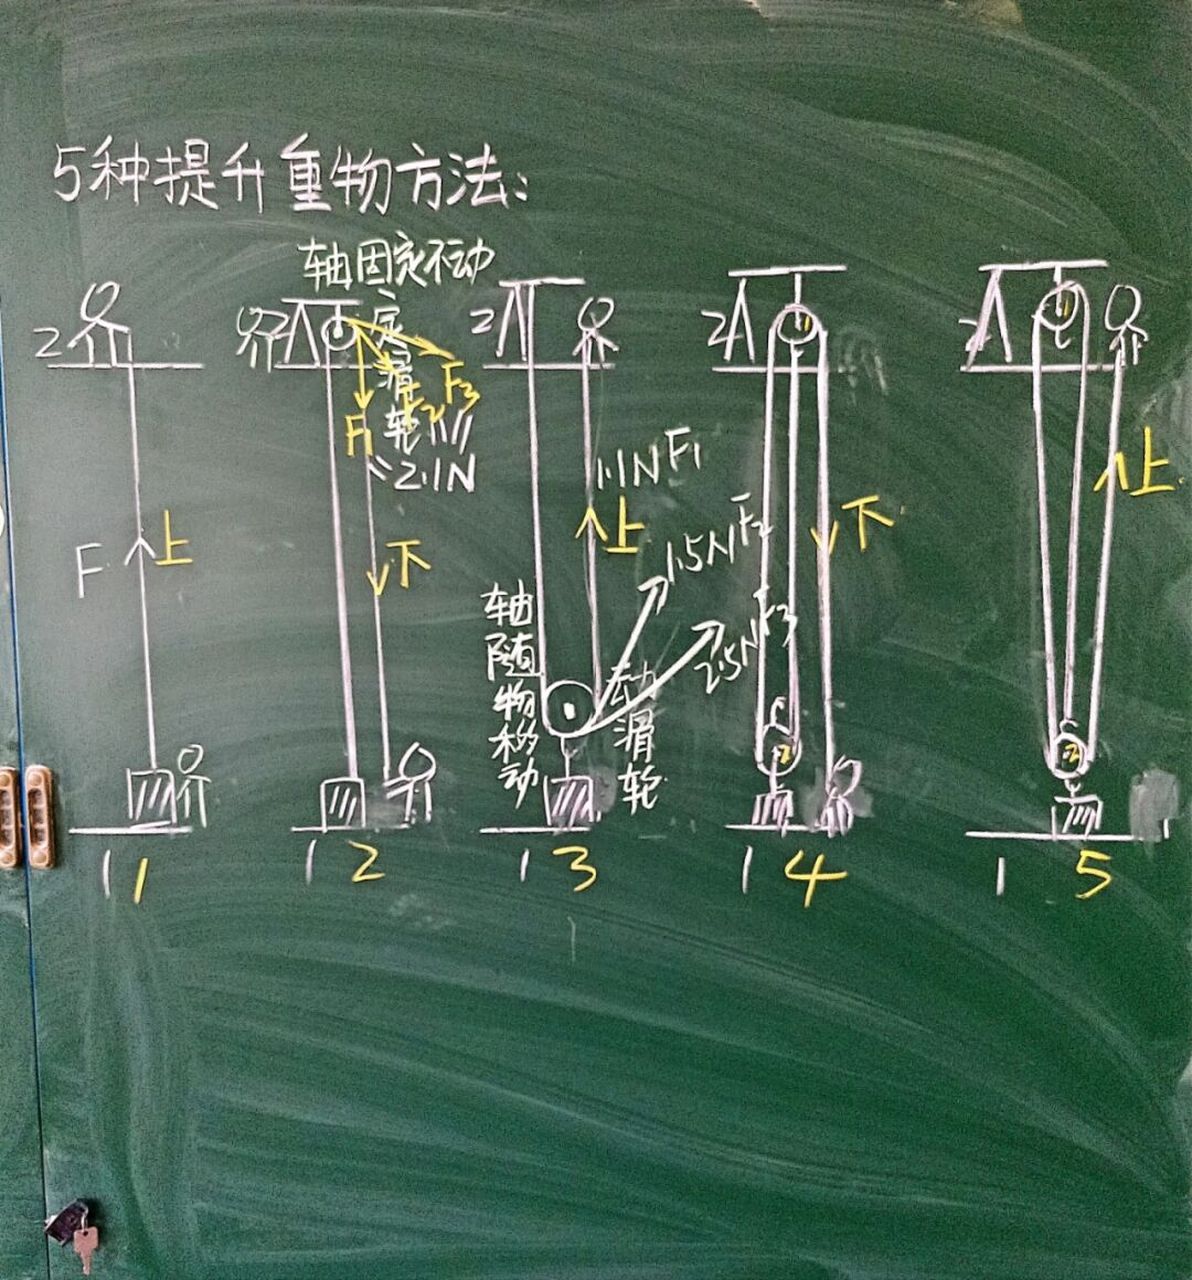 5种提升重物方法:
轴固定不动
定滑轮
2
2
2
2
F₁
F₂
F₃
2.1N
1.1N F₁
上
1.5N F₂
2.5N F₃
上
下
F
上
下
轴随物移动
动滑轮
1 1
1 2
1 3
1 4
1 5